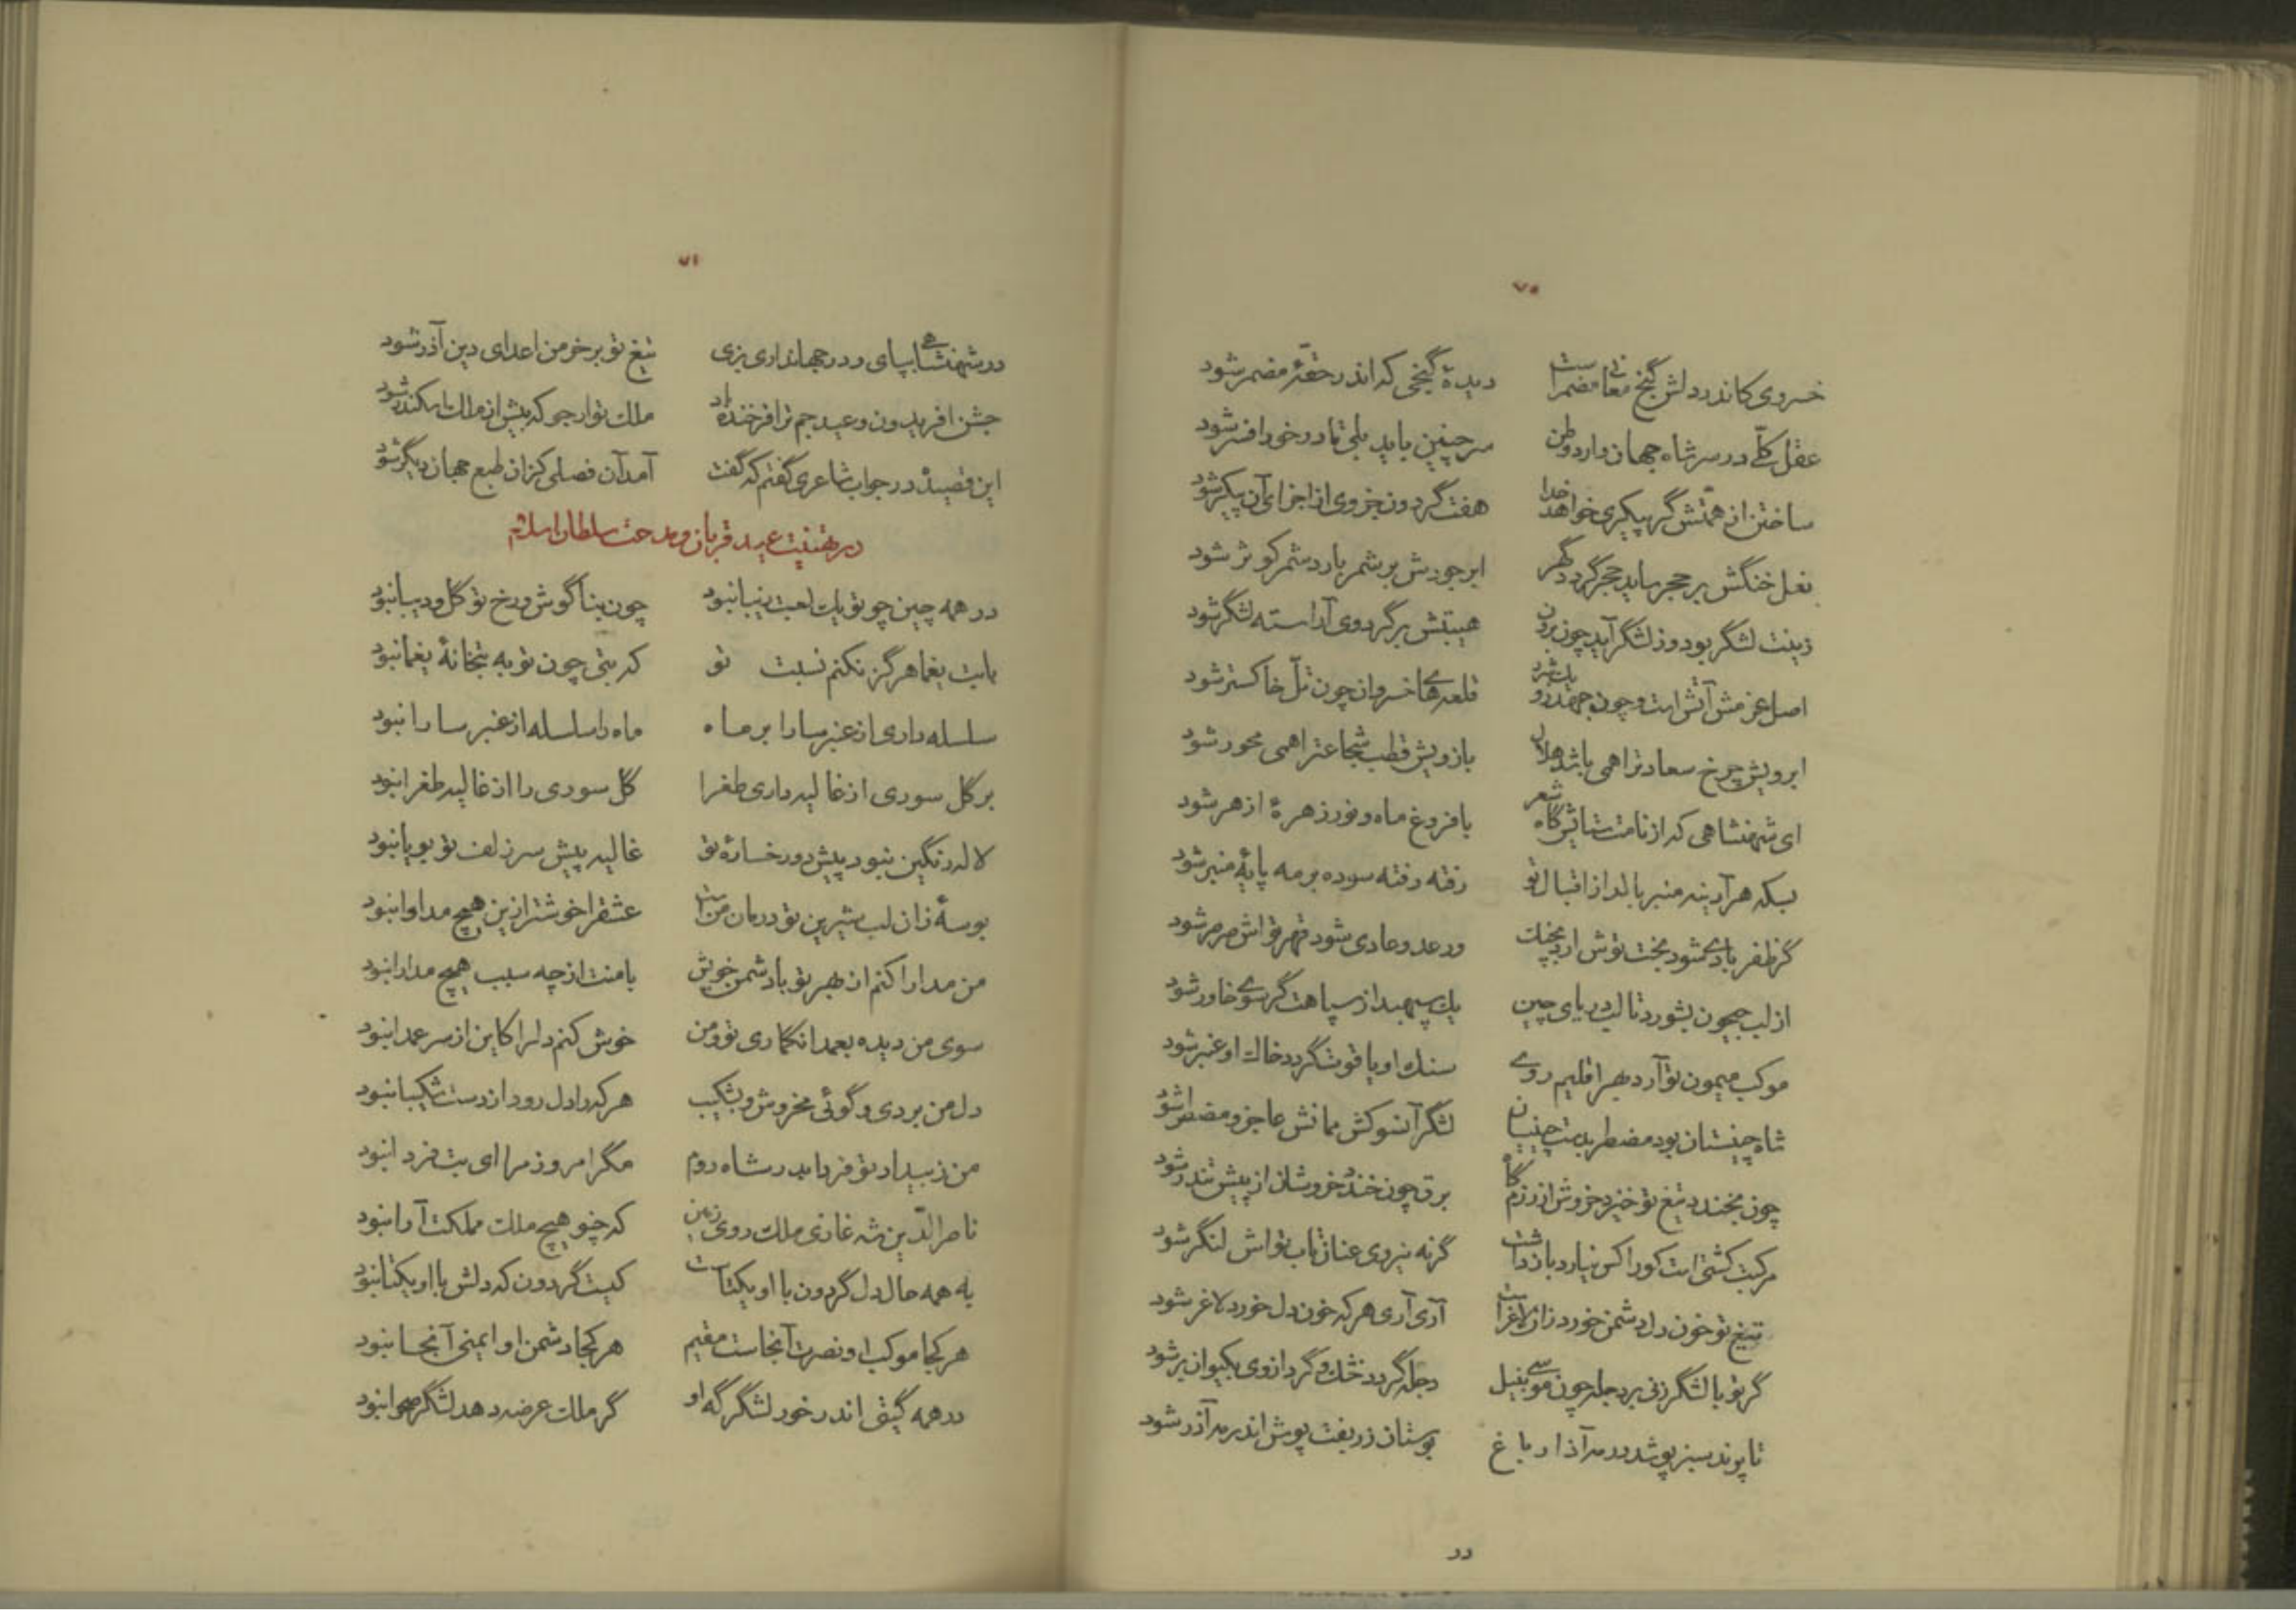 ۷۰
خسروی کاندر دلش گنج معانی مضمر است دیدهٔ گنجی که اندر حقهٔ مضمر شود
عقل کلّی در سر شاه جهان دارد وطن سر چنین باید بلی تا درخور افسر شود
ساختن از همتش گر پیکری خواهد خدا هفت گردون جزوی از اجزای آن پیکر شود
نعل خنگش بر حجر ساید حجر گردد گهر ابر جودش بر شمر بارد شمر کوثر شود
زینت لشگر بود وز لشگر آید چون برون هیبتش بر گرد وی آراسته لشگر شود
اصل عزمش آتش است و چون جهد زو یک شرر قلعه‌های خسروان چون تلّ خاکستر شود
ابرویش چرخ سعادت را همی باشد هلال بازویش قطب شجاعت را همی محور شود
ای شهنشاهی که از نامت ستایش گاه شعر با فروغ ماه و نور زهرهٔ ازهر شود
بسکه هر آدینه منبر بالد از اقبال تو رفته رفته سوده بر مه پایهٔ منبر شود
گر ظفر بادی شود بخت توش آرد بچنگ ور عدو عادی شود قهر تواش صرصر شود
از لب جیحون بشورد تا لب دریای چین یک سپهبد از سپاهت گر سوی خاور شود
موکب میمون تو آرد بهر اقلیم روی سنگ او یاقوت گردد خاک او عنبر شود
شاه چینستان بود مضطر بدست چینیان لشگر آنسو کش بمانش عاجز و مضطر شود
چون بخندد تیغ تو خیزد خروش از رزم گاه برق چون خندد خروشان از پیش تندر شود
مرکبت کشتی است کو را کس نیارد باز داشت گرنه نیروی عنان تاب تواش لنگر شود
تیغ تو خون دل دشمن خورد زان لاغر است آری آری هر که خون دل خورد لاغر شود
گر تو با لشگر زنی بر دجله چون موسی بنیل دجله گردد خشک و گرد از وی بکیوان بر شود
تا پرند سبز پوشد در مه آذار باغ بوستان زربفت پوش اندر مه آذر شود
در
۷۱
در شهنشاهی بپای و در جهانداری بزی تیغ تو بر خرمن اعدای دین آذر شود
جشن افریدون و عید جم ترا فرخنده باد ملک تو ارجو که بیش از ملک اسکندر شود
این قصیده در جواب شاعری گفتم که گفت آمد آن فصلی کزان طبع جهان دیگر شود
در تهنیت عید قربان و مدحت سلطان اسلام
در همه چین چو تو یک لعبت زیبا نبود چون بناگوش و رخ تو گل و دیبا نبود
بابت یغما هرگز نکنم نسبت تو که بتی چون تو به بتخانهٔ یغما نبود
سلسله داری از عنبر سارا بر ماه ماه را سلسله از عنبر سارا نبود
بر گل سوری از غالیه داری طغرا گل سوری را از غالیه طغرا نبود
لاله رنگین نبود پیش دو رخسارهٔ تو غالیه پیش سر زلف تو بویا نبود
بوسهٔ زان لب شیرین تو درمان منست عشق را خوشتر ازین هیچ مداوا نبود
من مدارا کنم از بهر تو با دشمن خویش با منت از چه سبب هیچ مدارا نبود
سوی من دیده بعمدا نگماری تو و من خوش کنم دل را کاین از سر عمدا نبود
دل من بردی و گوئی مخروش و بشکیب هر که را دل رود از دست شکیبا نبود
من ز بیداد تو فردا بدر شاه روم مگر امروز مرا ای بت فردا نبود
ناصرالدّین شه غازی ملک روی زمین که چنو هیچ ملک مملکت آرا نبود
به همه حال دل گردون با او یکتاست کیست گردون که دلش با او یکتا نبود
هر کجا موکب او نصرت آنجاست مقیم هر کجا دشمن او ایمنی آنجا نبود
در همه گیتی اندر خور لشگرگه او گر ملک عرضه دهد لشگر صحرا نبود